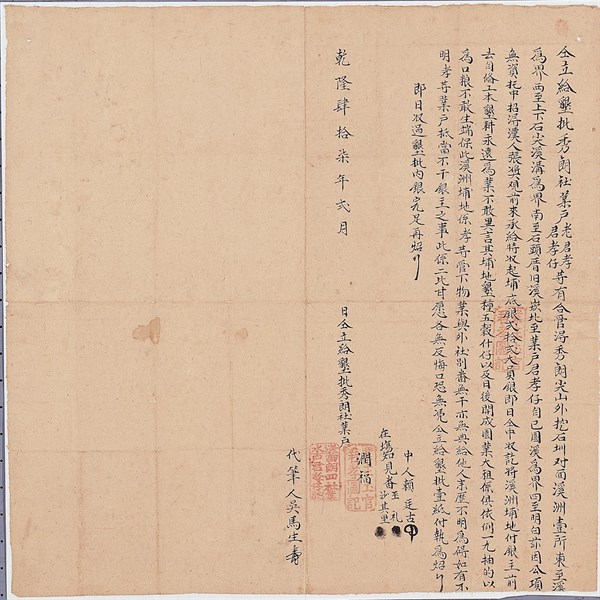 仝立給墾批秀朗社業戶老君孝君孝仔等有合管得秀朗尖山外挖石圳對面溪洲壹所東至溪
為界西至上下石尖溪溝為界南至石頭厝旧溪崁北至業戶君孝仔自己園溪為界四至明白茲因公項
無資托中招得漢人張獎觀前來承給特收起埔底銀弍拾弍大員願即日仝中收訖將溪洲埔地付銀主前
去自俻工本墾耕永遠為業不敢異言其埔地墾種五穀什仔以及日後開成園業大租係俱依例一九抽的以
為口糧不敢生端保此溪洲埔地係孝等管下物業與外社別番無干亦無典給他人来歷不明為碍如有不
明孝等業戶抵當不干銀主之事此係二比甘愿各無反悔口恐無凴仝立給墾批壹紙付執為炤
即日收過墾批內銀完足再炤
乾隆肆拾柒年弍月 日仝立給墾批秀朗社業戶
中人賴廷古
在塲知見番至礼
潤福
代筆人吳馬生壽